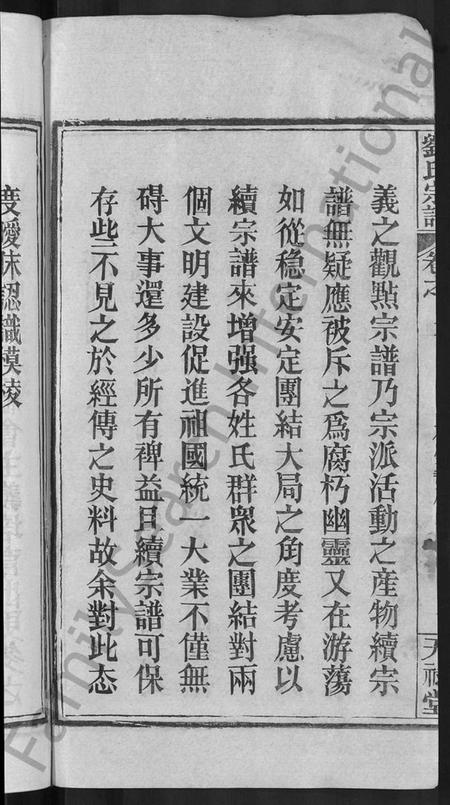 義之觀點宗譜乃宗派活動之產物續宗
譜無疑應被斥之爲腐朽幽靈又在游蕩
如從穩定安定團結大局之角度考慮以
續宗譜來增强各姓氏群衆之團結對兩
個文明建設促進祖國統一大業不僅無
碍大事還多少所有裨益且續宗譜可保
存些不見之於經傳之史料故余對此态
劉氏宗譜
卷之
天祿堂
度曖昧認識模棱
FamilySearch International